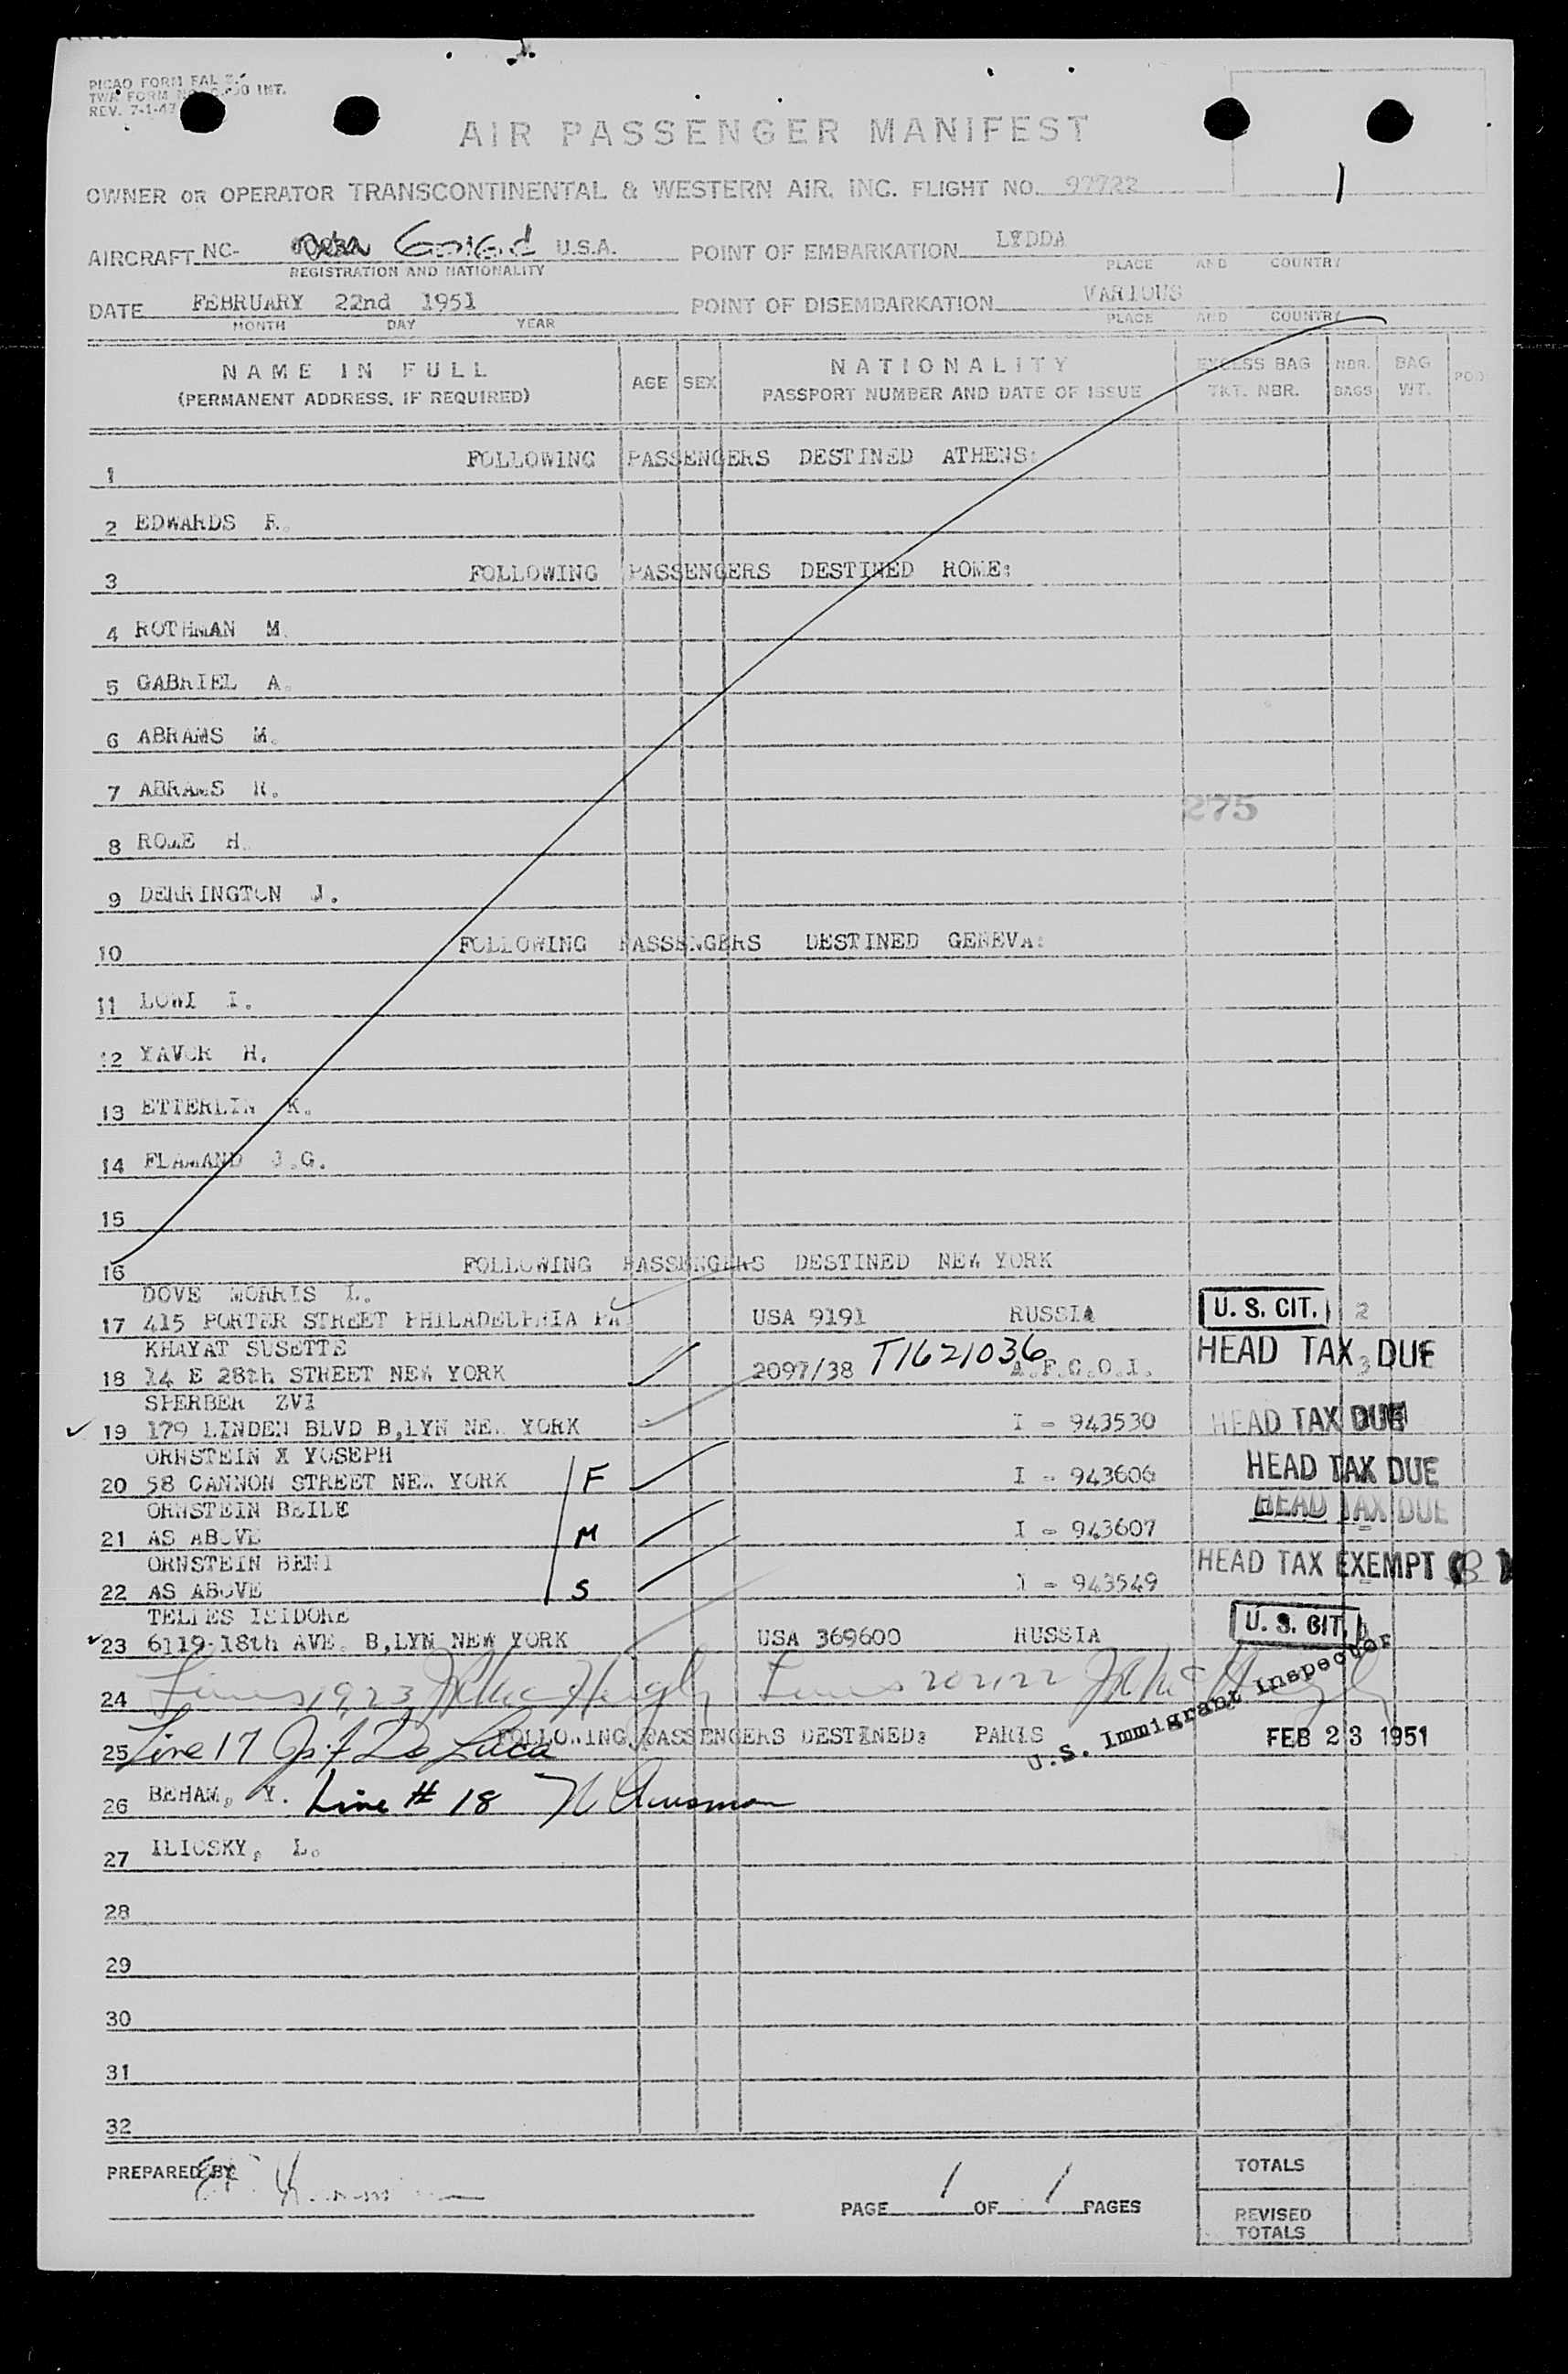 PICAO FORM FAL
TWA FORM INT.
REV. 7-1-47
AIR PASSENGER MANIFEST
OWNER OR OPERATOR TRANSCONTINENTAL & WESTERN AIR, INC. FLIGHT NO. 97722
1
AIRCRAFT NC- U.S.A. POINT OF EMBARKATION LYDDA
REGISTRATION AND NATIONALITY PLACE AND COUNTRY
DATE FEBRUARY 22nd 1951 POINT OF DISEMBARKATION VARIOUS
MONTH DAY YEAR PLACE AND COUNTRY
NAME IN FULL AGE SEX NATIONALITY EXCESS BAG NBR. BAG POD
(PERMANENT ADDRESS, IF REQUIRED) PASSPORT NUMBER AND DATE OF ISSUE TKT. NBR. BAGS WT.
1 FOLLOWING PASSENGERS DESTINED ATHENS:
2 EDWARDS R.
3 FOLLOWING PASSENGERS DESTINED ROME:
4 ROTHMAN M.
5 GABRIEL A.
6 ABRAMS M.
7 ABRAMS R.
275
8 ROME H.
9 DERRINGTON J.
10 FOLLOWING PASSENGERS DESTINED GENEVA:
11 LOWI I.
12 YAVOR H.
13 ETTERLIN K.
14 FLAMAND J.G.
15
16 FOLLOWING PASSENGERS DESTINED NEW YORK
DOVE MORRIS L.
17 415 PORTER STREET PHILADELPHIA PA USA 9191 RUSSIA U. S. CIT. 2
KHAYAT SUSETTE
18 14 E 28th STREET NEW YORK 2097/38 T1621036 A.F.G.O.I. HEAD TAX DUE 3
SPERBER ZVI
19 179 LINDEN BLVD B,LYN NEW YORK I - 943530 HEAD TAX DUE
ORNSTEIN X YOSEPH
20 58 CANNON STREET NEW YORK F I - 943606 HEAD TAX DUE
ORNSTEIN BEILE
21 AS ABOVE M I - 943607 HEAD TAX DUE
ORNSTEIN BENI
22 AS ABOVE S I - 943549 HEAD TAX EXEMPT (B)
TELPES ISIDORE
23 6119-18th AVE. B,LYN NEW YORK USA 369600 RUSSIA U. S. CIT.
24 Lines 19, 23 Lines 20 21 22
U.S. Immigrant Inspector
25 Line 17 FOLLOWING PASSENGERS DESTINED: PARIS FEB 23 1951
26 BEHAM, Y. Line # 18
27 ILIOSKY, L.
28
29
30
31
32
PREPARED BY TOTALS
PAGE 1 OF 1 PAGES REVISED
TOTALS